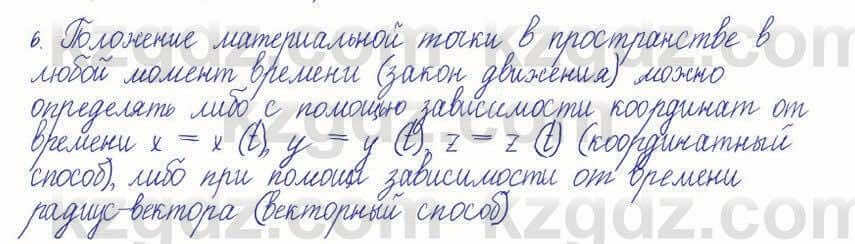 6. Положение материальной точки в пространстве в
любой момент времени (закон движения) можно
определять либо с помощью зависимости координат от
времени x = x (t), y = y (t), z = z (t) (координатный
способ), либо при помощи зависимости от времени
радиус-вектора (векторный способ)
kzgdz.com